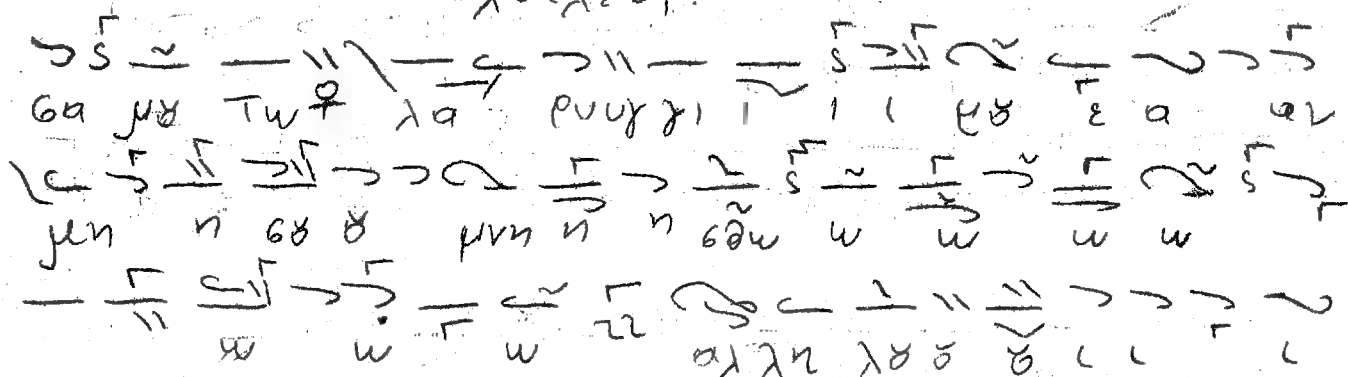 σα μȣ τω λα ρυυγ γι ι ι ι μȣ ε α αν
μη η σȣ ȣ μνη η η σθω ω ω ω ω
ω ω ω αλ λη λȣ ȣ ȣ ι ι ι